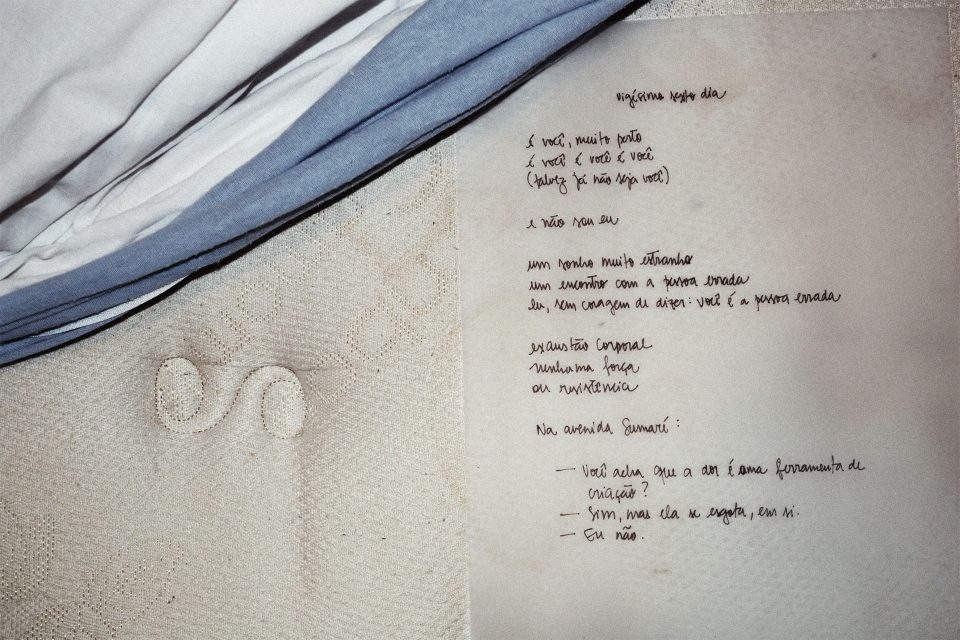 vigésimo sexto dia
é você, muito perto
é você é você é você
(talvez já não seja você)
e não sou eu
um sonho muito estranho
um encontro com a pessoa errada
eu, sem coragem de dizer: você é a pessoa errada
exaustão corporal
nenhuma força
ou resistência
Na avenida Sumaré:
— Você acha que a dor é uma ferramenta de
criação?
— Sim, mas ela se esgota, em si.
— Eu não.